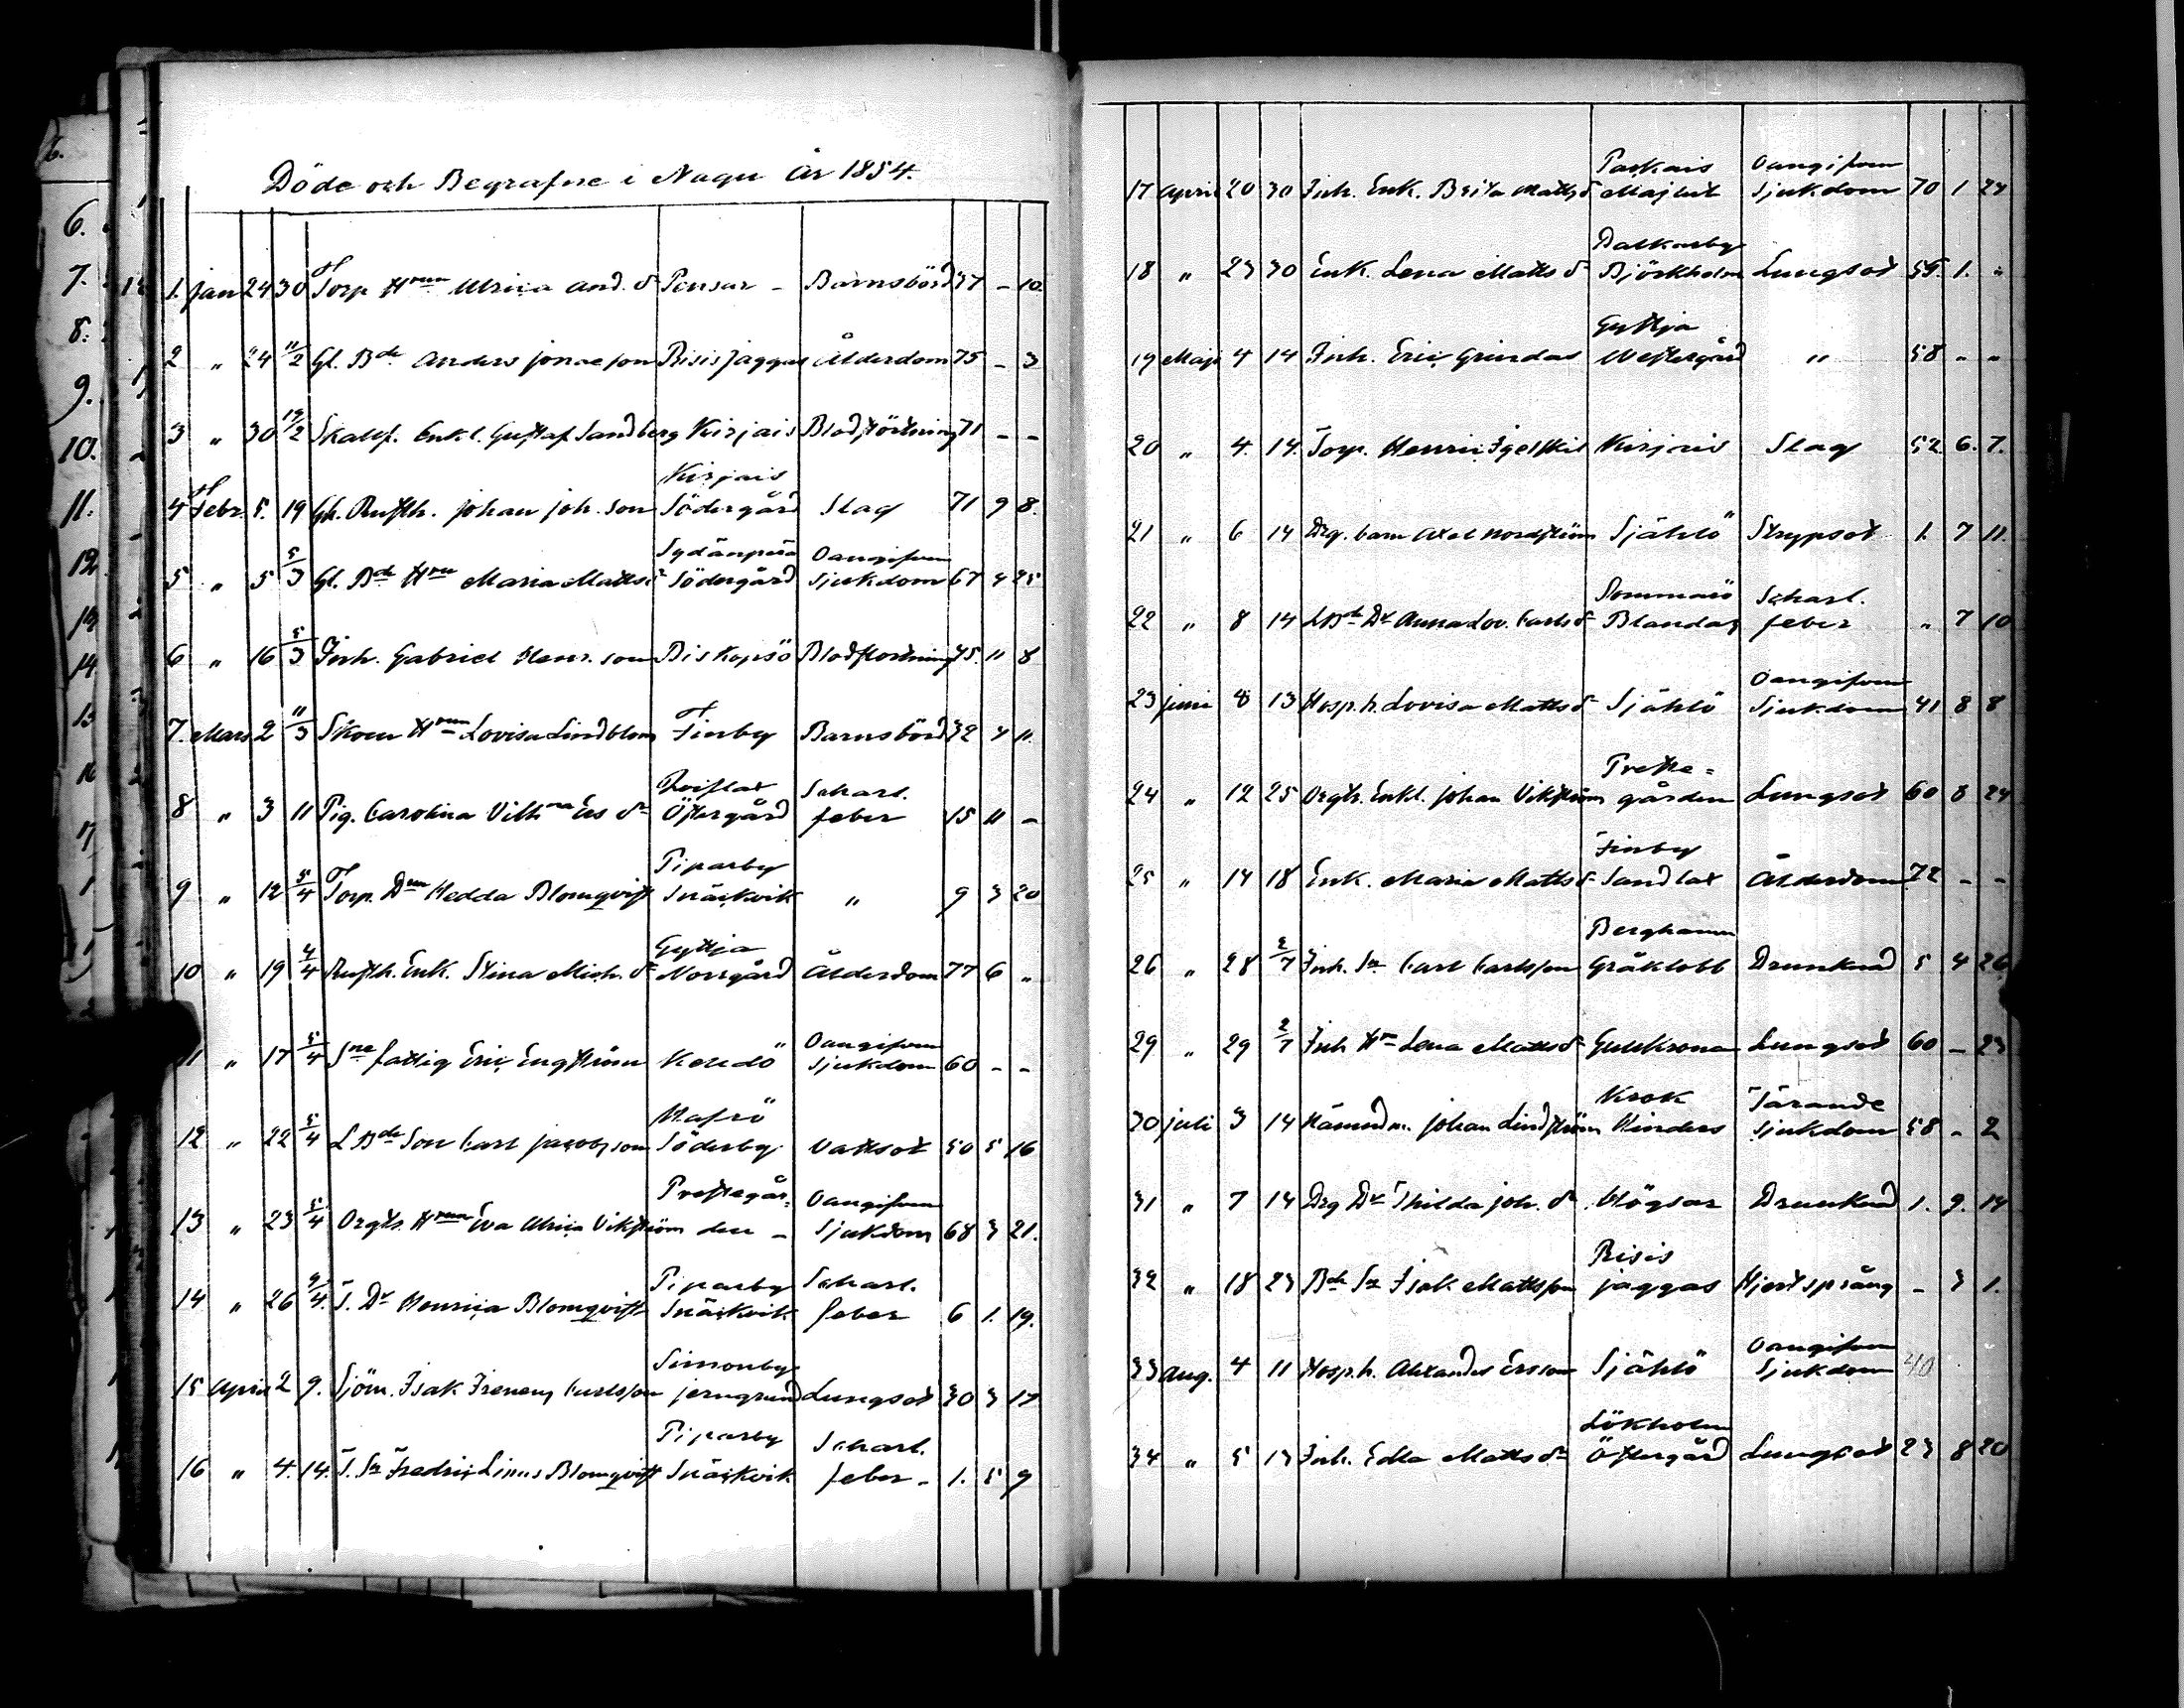 Döde och Begrafne i Nagu År 1854.
1. Jan 24 30 Torp. Hrun Ulrica And. dr Pensar - Barnsbörd 37 - 10.
2 " 24 11/2 Gl. Bde Anders Jonasson Risis Jaggas Ålderdom 75 - 3
3 " 30 19/2 Skattf. Enkl. Gustaf Sandberg Kirjais Blodstörtning 71 - -
Kirjais
4 Febr. 5. 19 Gl. Rusth. Johan Joh. son Södergård Slag 71 9 8.
Sydänperä Oangifven
5 " 5 5/3 Gl. Bde Hru Maria Matts dr Södergård Sjukdom 67 4 25
6 " 16 5/3 Inh. Gabriel Henr. son Biskopsö Blodstortning 75. 11 8
7. Mars 2 11/3 Skom Hrun Lovisa Lindblom Finby Barnsbörd 32 4 11.
Qviflax Scharl.
8 " 3 11 Pig. Carolina Vilhna Ers dr Östergård feber 15 11 -
Piparby
9 " 12 5/4 Torp. Dren Hedda Blomqvist Snäckvik " 9 3 20
Gyttja
10 " 19 4/4 Rusth. Enk. Stina Mich. dr Norrgård Ålderdom 77 6 "
Oangifven
11 " 17 5/4 Sne fattig Eric Engström Keudö Sjukdom 60 - -
Mafsö
12 " 22 5/4 L Bde Son Carl Jacobsson Söderby Vattsot 50 5 16
Prestegår- Oangifven
13 " 23 5/4 Orgts. Hrun Eva Ulrica Vikström den - Sjukdom 68 3 21.
Piparby Scharl.
14 " 26 9/4. T. Dr Henrica Blomqvist Snäckvik feber 6 1. 19.
Simonby
15 April 2 9. Sjöm. Isak Carlsson jerngrund Lungsot 30 3 17
Piparby Scharl.
16 " 4. 14. T. Sn Fredric Linus Blomqvist Snäckvik feber - 1. 5 9
Parkais Oangifven
17 April 20 30 Inh. Enk. Brita Matts dr Majbst Sjukdom 70 1. 24
Dalkarby
18 " 23 30 Enk. Lena Matts dr Björkholm Lungsot 55. 1. "
Gyttja
19 Maji 4 14 Inh. Eric Grindas Westergård " 58 - "
20 " 4. 14. Torp. Henric Igelskil Kirjais Slag 52. 6. 7.
21 " 6 14 Drg. barn Axel Nordström Själö Strypsot 1. 7 11.
Pommarö Scharl.
22 " 8 14 L Bde Dr Anna Lov. Carls dr Blandas feber " 7 10
Oangifven
23 Juni 8 13 Hosp. h. Lovisa Matts dr Själö Sjukdom 41 8 8
Preste-
24 " 12 25 Orgts. Enkl. Johan Vikström gården Lungsot 60 8 24
Finby
25 " 14 18 Enk. Maria Matts dr Sandlax Ålderdom 72 - -
Berghamn
26 " 28 2/7 Inh. Sn Carl Carlsson Gråklobb Drunknad 5 4 26
29 " 29 2/7 Inh Hru Lena Matts dr Gullkrona Lungsot 60 - 23
Krok Tärande
30 Juli 3 14 Nämndm. Johan Lindström Hinders Sjukdom 58 - 2
31 " 7 14 Drg Dr Thilda Joh. dr Högsar Drunknad 1. 9. 14
Risis
32 " 18 23 Bde Sn Isak Mattsson jaggas Hjertsprång - 3 1.
Oangifven
33 Aug. 4 11 Hosp. h. Alexander Ersson Själö Sjukdom 40
Lökholm
34 " 5 13 Inh. Edla Matts dr Östergård Lungsot 23 8 20
6.
7.
8.
9.
10.
11.
12
13
14
15
16
17